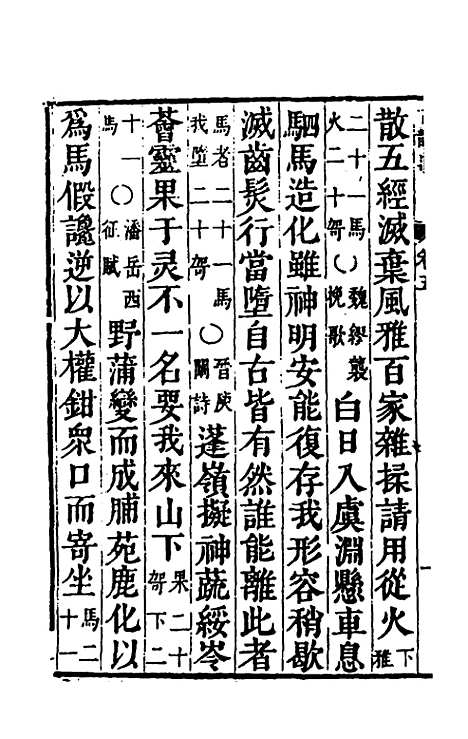 散五經滅棄風雅百家雜揉請用從火下雅
二十一馬火二十哿〇魏繆襲挽歌白日入虞淵懸車息
駟馬造化雖神明安能復存我形容稍歇
滅齒髮行當墮自古皆有然誰能離此者
馬者二十一馬我墮二十哿〇晉庾闡詩蓬嶺擬神蔬綏岑
薈靈果于灵不一名要我來山下果二十哿下二
十一馬〇潘岳西征賦野蒲變而成脯苑鹿化以
爲馬假讒逆以大權鉗衆口而寄坐馬二十一